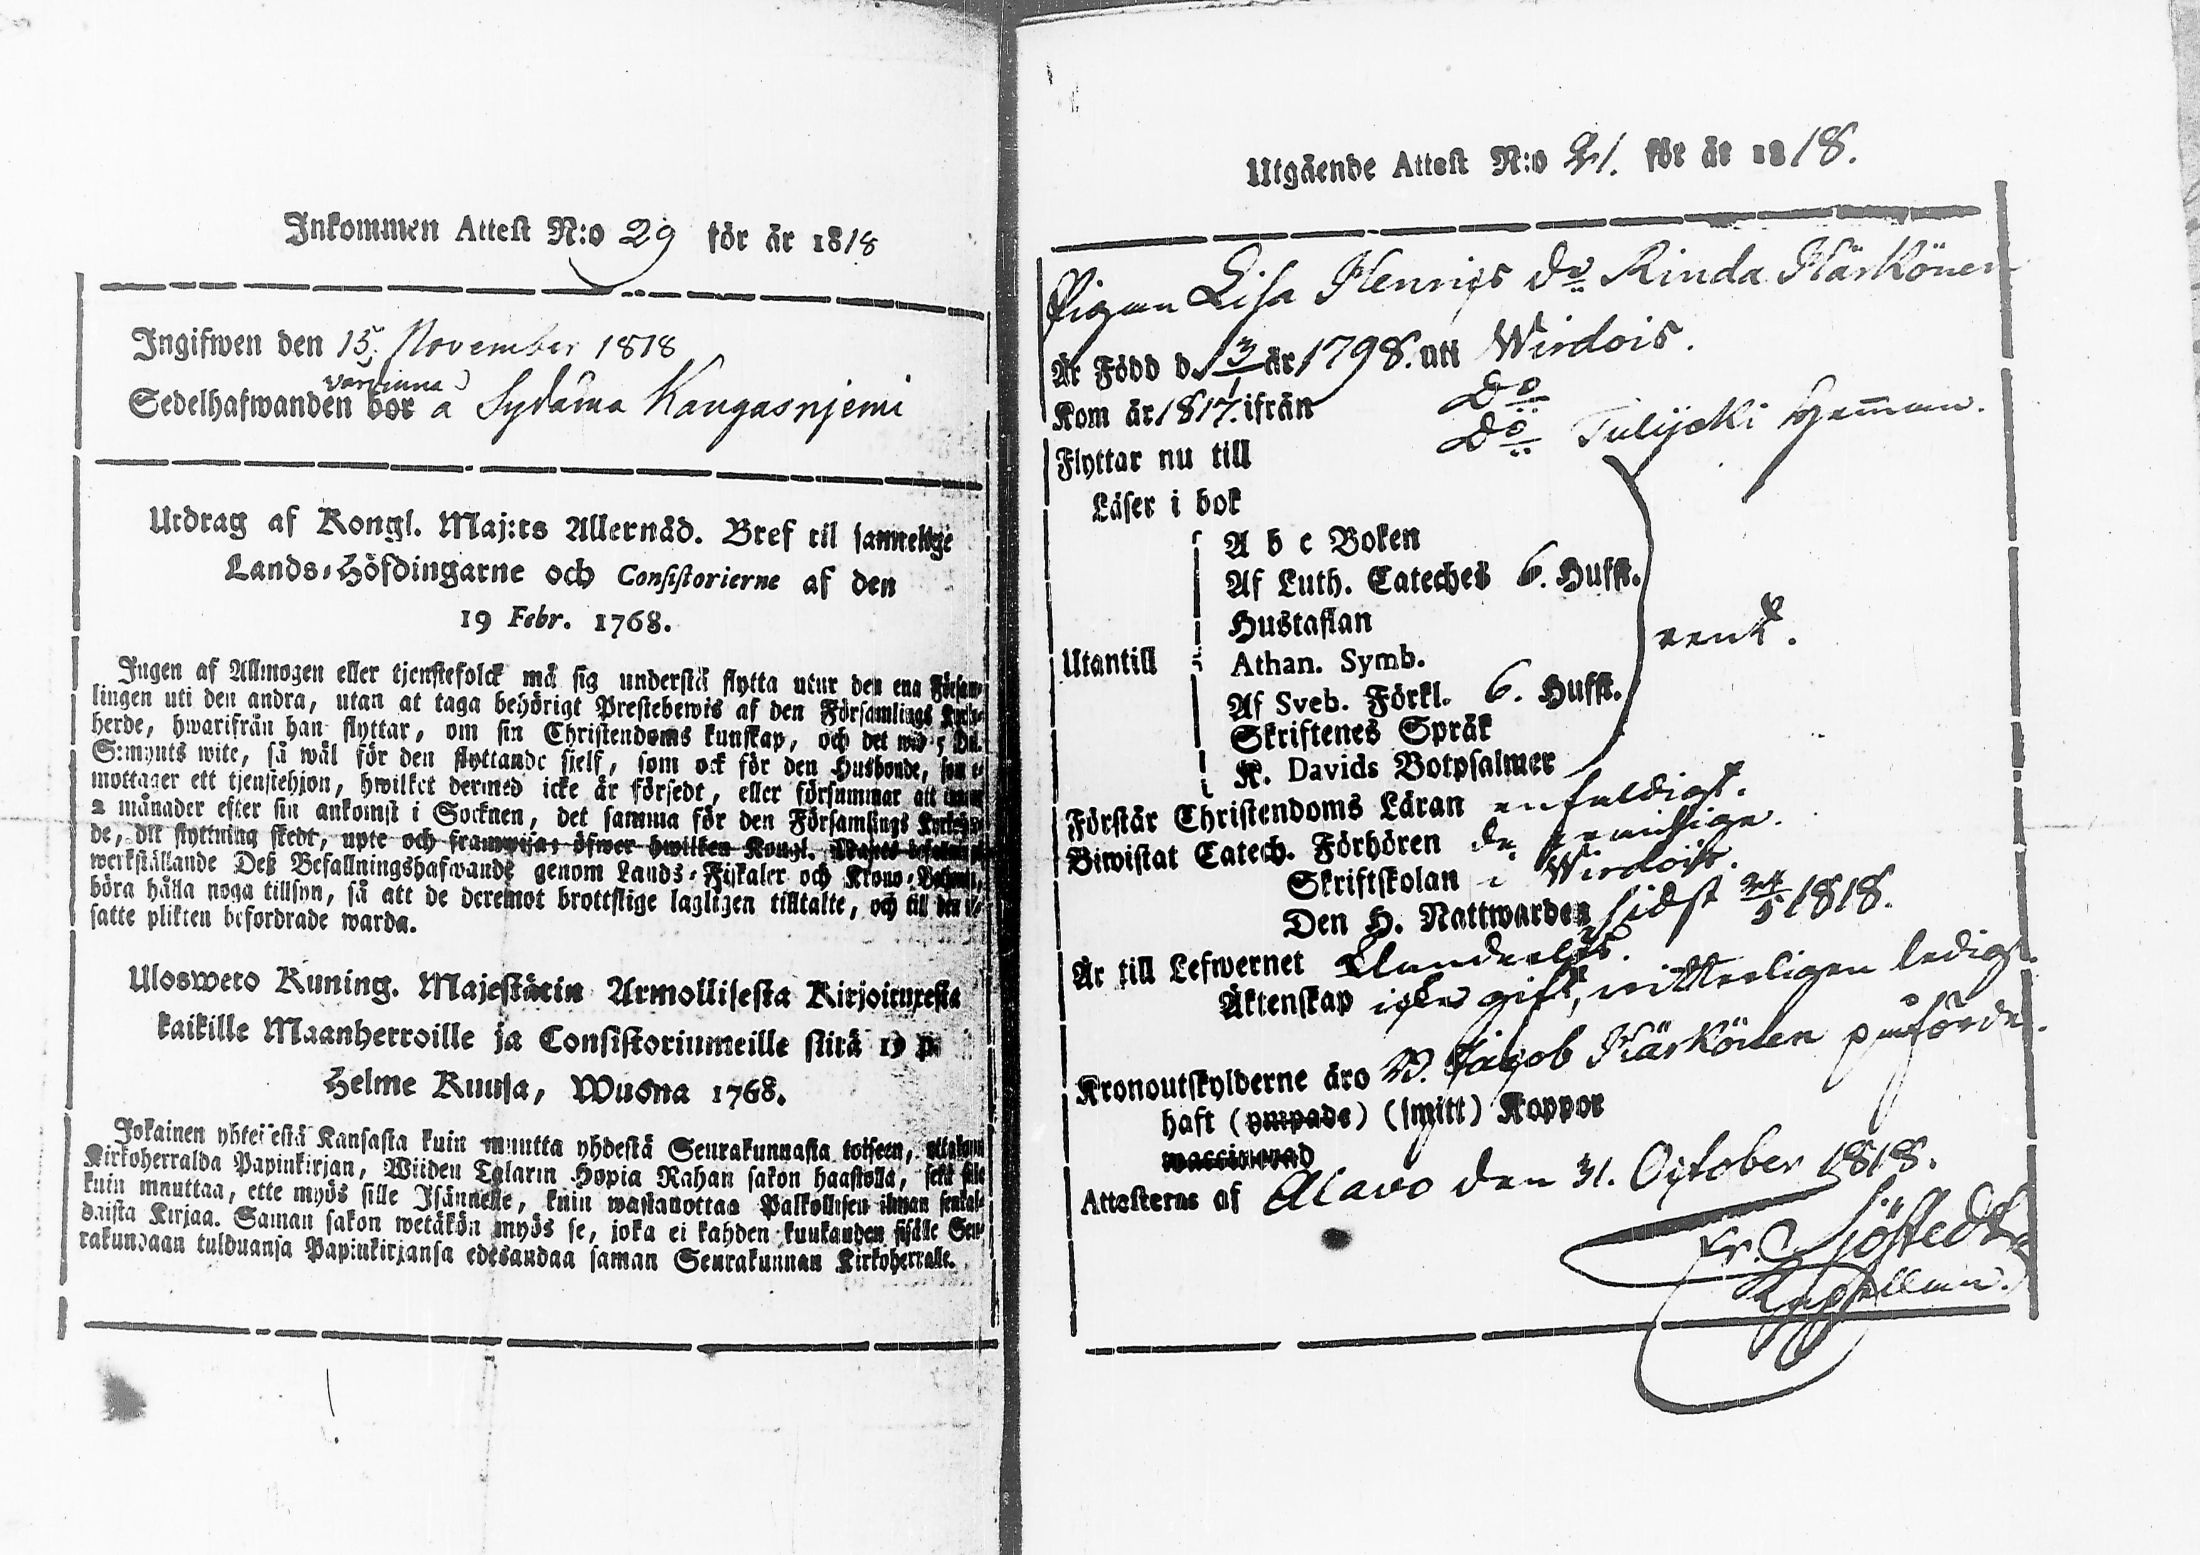 Inkommen Attest N:o 29 för år 1818
Ingifwen den 15 November 1818
värdinna
Sedelhafwanden bor å Sydäma Kangasnjemi
Utdrag af Kongl. Maj:ts Allernåd. Bref til samtelige
Lands-Höfdingarne och Consistorierne af den
19 Febr. 1768.
Ingen af Allmogen eller tjenstefolck må sig understå flytta utur den ena Försam-
lingen uti den andra, utan at taga behörigt Prestebewis af den Församlings Kyrko-
herde, hwarifrån han flyttar, om sin Christendoms kunskap, och det wid 5 Dal.
S:mynts wite, så wäl för den flyttande sjelf, som ock för den Husbonde, som e-
mottager ett tjenstehjon, hwilket dermed icke är försedt, eller försummar att innom
2 månader efter sin ankomst i Socknen, det samma för den Församlings Kyrkoher-
de, dit flyttning skedt, upte och framwisa; öfwer hwilken Kongl. Maj:ts befallning
werkställande Deß Befallningshafwande genom Lands-Fiskaler och Krono-Betjente,
böra hålla noga tillsyn, så att de deremot brottslige lagligen tilltalte, och till den i-
satte plikten befordrade warda.
Ulosweto Kuning. Majestätin Armollisesta Kirjoituxesta
kaikille Maanherroille ja Consistoriumeille siitä 19 p.
Helme Kuusa, Wuonna 1768.
Jokainen yhteisestä Kansasta kuin muutta yhdestä Seurakunnasta toiseen, ottakoon
Kirkoherralda Papinkirjan, Wiiden Talarin Hopia Rahan sakon haastolla, sekä sille
kuin muuttaa, ette myös sille Isännelle, kuin wastanottaa Palkollisen ilman senkal-
daista Kirjaa. Saman sakon wetäkön myös se, joka ei kahden kuukauden sisälle Seu-
rakundaan tulduansa Papinkirjansa edesandaa saman Seurakunnan Kirkoherralle.
Utgående Attest N:o 21. för år 1818.
Pigan Lisa Henrics dr Rinda Härkönen
Är Född d. 3/1 år 1798. uti Wirdois.
Kom år 1817. ifrån Do
Flyttar nu till Do Tulijoki hemman.
Läser i bok
A b c Boken
Af Luth. Cateches 6. Hufst.
Hustaflan
Utantill Athan. Symb. rent.
Af Sveb. Förkl. 6. Hufst.
Skriftenes Språk
K. Davids Botpsalmer
Förstår Christendoms Läran enfaldigt.
Biwistat Catech. Förhören de
Skriftskolan i Wirdois.
Den H. Nattwarden sidst 24/5 1818.
Är till Lefwernet
Äktenskap icke gift, witterligen ledig.
Kronoutskylderne äro W. Jacob Härkönen påförde.
haft (ympade) (smitt) Koppor
Attesteras af Alavo den 31. October 1818.
Fr. Sjöstedt
Kapellan.